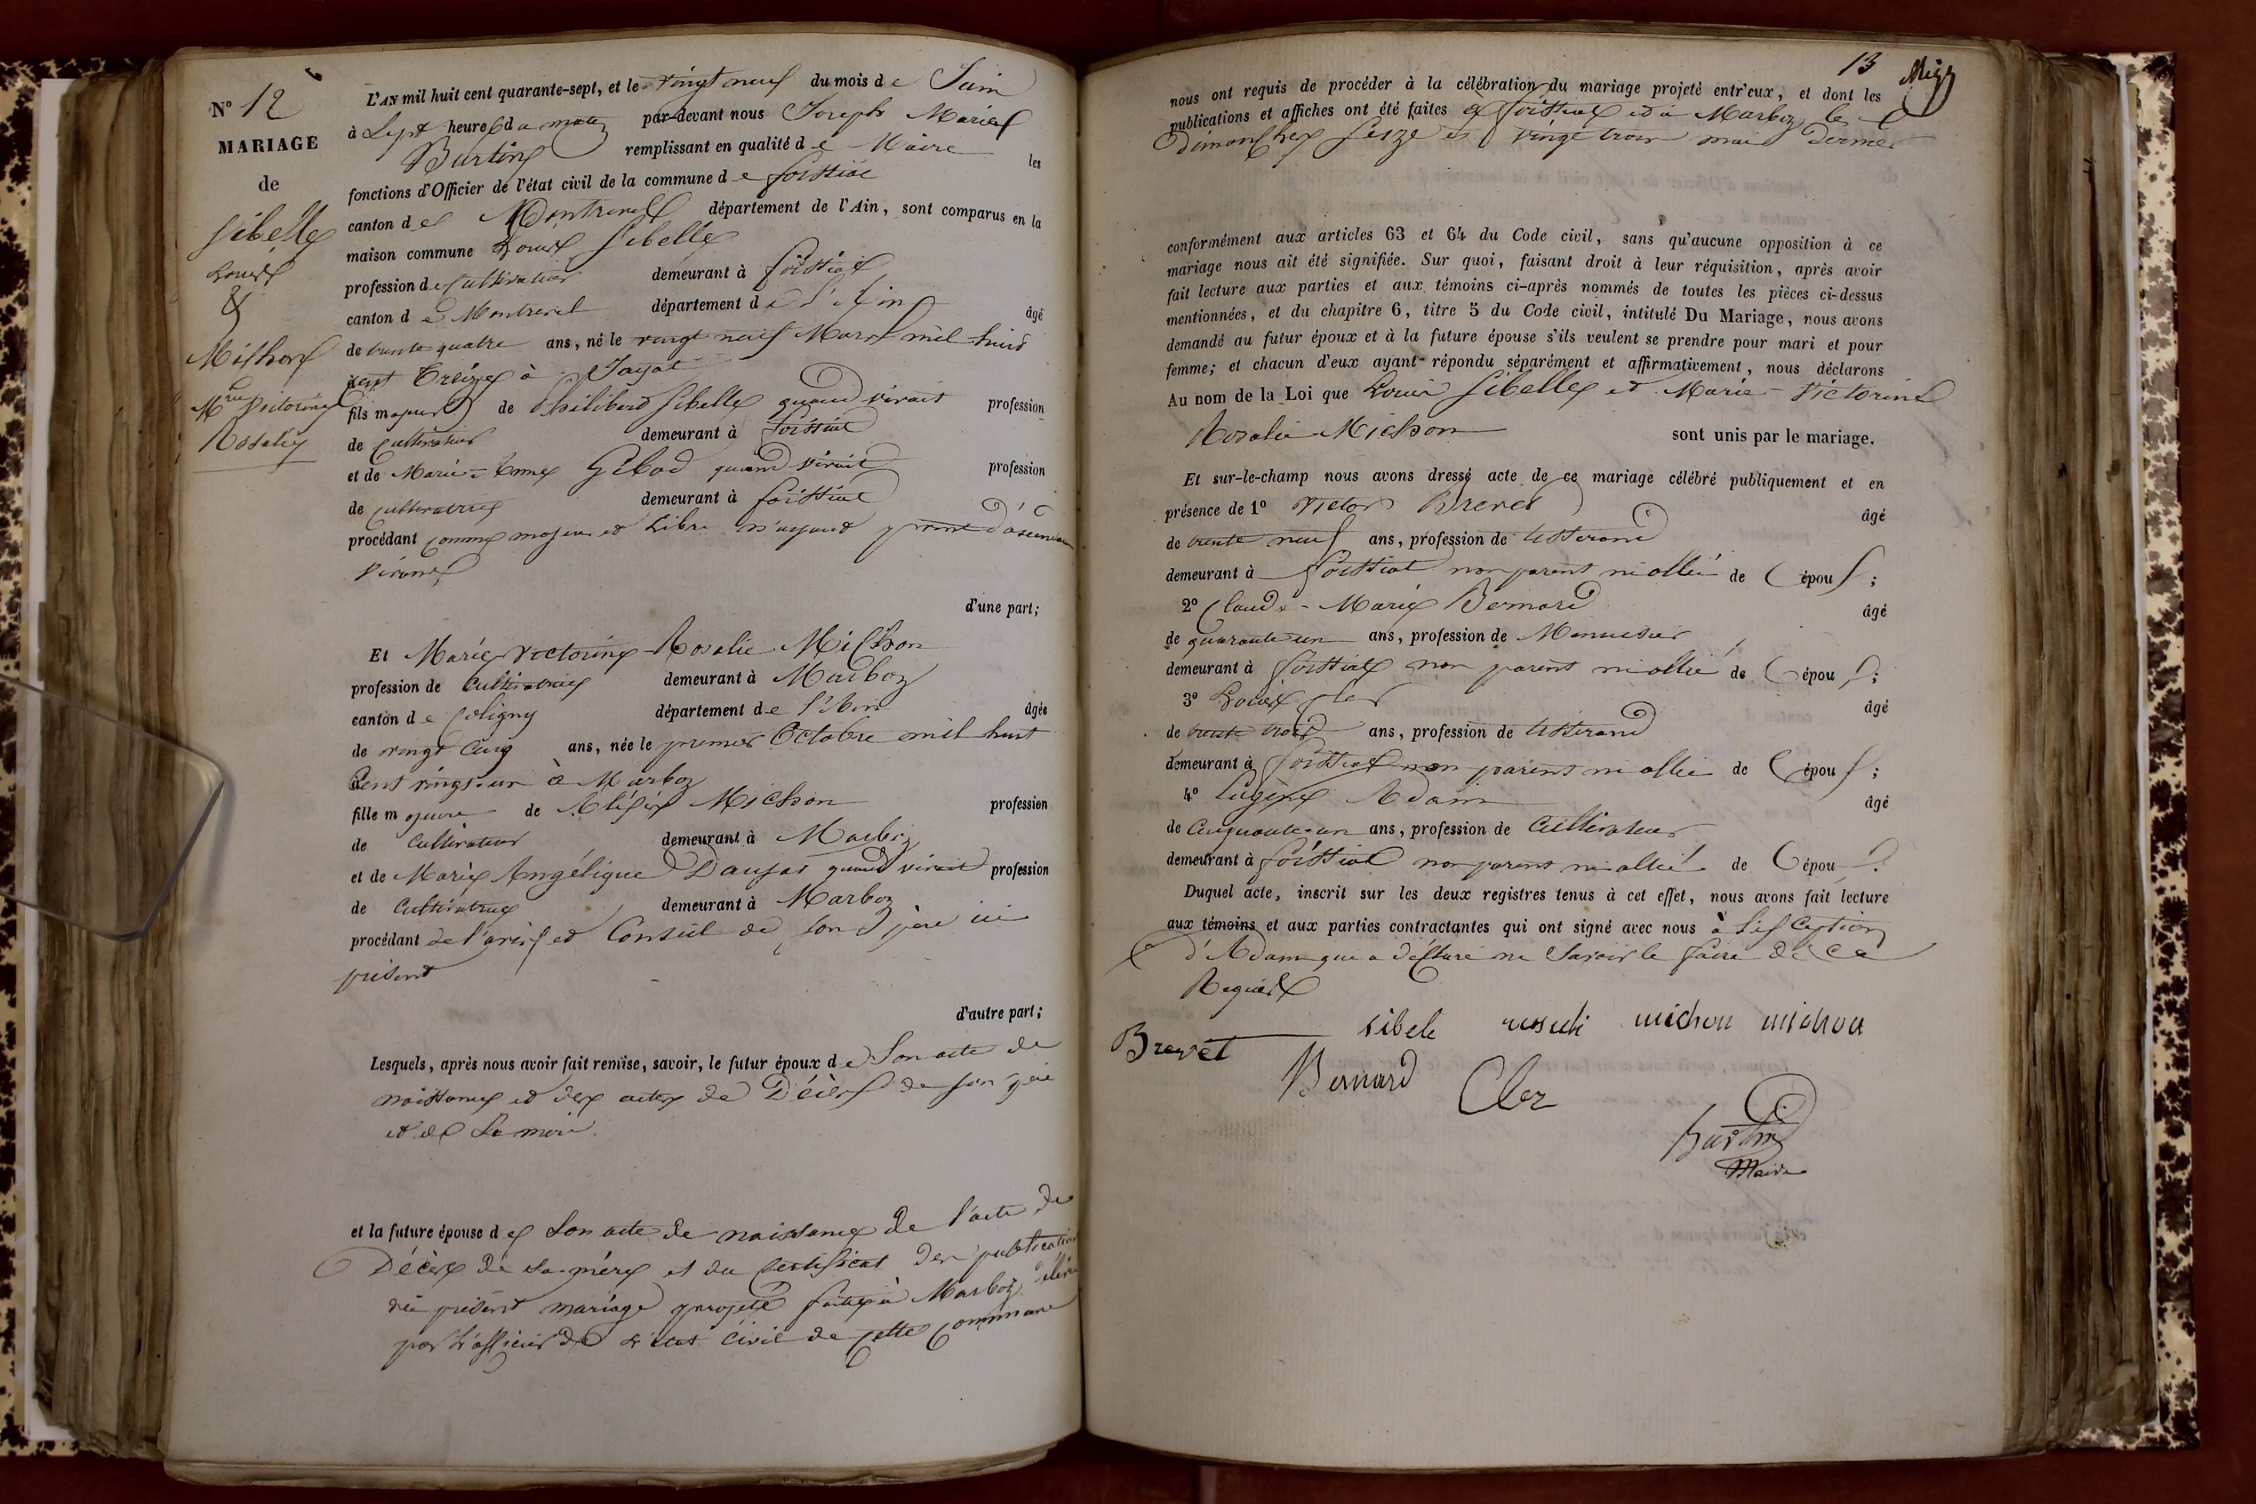 N° 12
MARIAGE
de
Sibelle
Louis
&
Michon
Mrie Victorine
Rosalie
L'AN mil huit cent quarante-sept, et le vingt neuf du mois de Juin
à Sept heures du matin par-devant nous Joseph Marie
Burtin remplissant en qualité de Maire les
fonctions d'Officier de l'état civil de la commune de foissiat
canton de Montrevel département de l'Ain, sont comparus en la
maison commune Louis Sibelle
profession de Cultivateur demeurant à foissiat
canton de Montrevel département de l'Ain âgé
de trente quatre ans, né le vingt neuf Mars mil huit
cent Treize à Jayat
fils majeur de Philibert Sibelle quand vivait profession
de cultivateur demeurant à foissiat
et de Marie-Anne Gibod quand vivait profession
de cultivatrice demeurant à foissiat
procédant comme majeur et Libre n'ayant point d'ascendans
vivans
d'une part;
Et Marie Victorine Rosalie Michon
profession de Cultivatrice demeurant à Marboz
canton de Coligny département de l'Ain âgée
de vingt Cinq ans, née le premier Octobre mil huit
Cent vingt-un à Marboz
fille majeure de Michon profession
de Cultivateur demeurant à Marboz
et de Marie Angélique Daujat quand vivait profession
de Cultivatrice demeurant à Marboz
procédant de l'avis et Conseil de son père ici
présent
d'autre part;
Lesquels, après nous avoir fait remise, savoir, le futur époux de Son acte de
naissance et des actes de Décès de son père
et de Sa mère
et la future épouse de Son acte de naissance de l'acte de
Décès de sa mère et du Certificat des publications
du présent mariage projeté faites à Marboz délivré
par l'officier de l'état Civil de cette commune
13
nous ont requis de procéder à la célébration du mariage projeté entr'eux, et dont les
publications et affiches ont été faites à foissiat et à Marboz les
Dimanches Seize et vingt trois mai dernier
conformément aux articles 63 et 64 du Code civil, sans qu'aucune opposition à ce
mariage nous ait été signifiée. Sur quoi, faisant droit à leur réquisition, après avoir
fait lecture aux parties et aux témoins ci-après nommés de toutes les pièces ci-dessus
mentionnées, et du chapitre 6, titre 5 du Code civil, intitulé Du Mariage, nous avons
demandé au futur époux et à la future épouse s'ils veulent se prendre pour mari et pour
femme; et chacun d'eux ayant répondu séparément et affirmativement, nous déclarons
Au nom de la Loi que Louis Sibelle et Marie-Victorine
Rosalie Michon sont unis par le mariage.
Et sur-le-champ nous avons dressé acte de ce mariage célébré publiquement et en
présence de 1° Victor Brevet âgé
de trente neuf ans, profession de tisserand
demeurant à foissiat non parent ni allié de L épou s;
2° Claude-Marie Bernard âgé
de quarante un ans, profession de Menuisier
demeurant à foissiat non parent ni allié de L épou s;
3° Louis Cler âgé
de trente trois ans, profession de tisserand
demeurant à foissiat non parent ni allié de L épou s;
4° Eugène Adam âgé
de Cinquante-un ans, profession de Cultivateur
demeurant à foissiat non parent ni allié de L épou s.
Duquel acte, inscrit sur les deux registres tenus à cet effet, nous avons fait lecture
aux témoins et aux parties contractantes qui ont signé avec nous à L'exception
d'Adam qui a déclaré ne Savoir le faire de ce
Requis
Brevet sibele rosali michon michon
Bernard Cler
Burtin
Maire